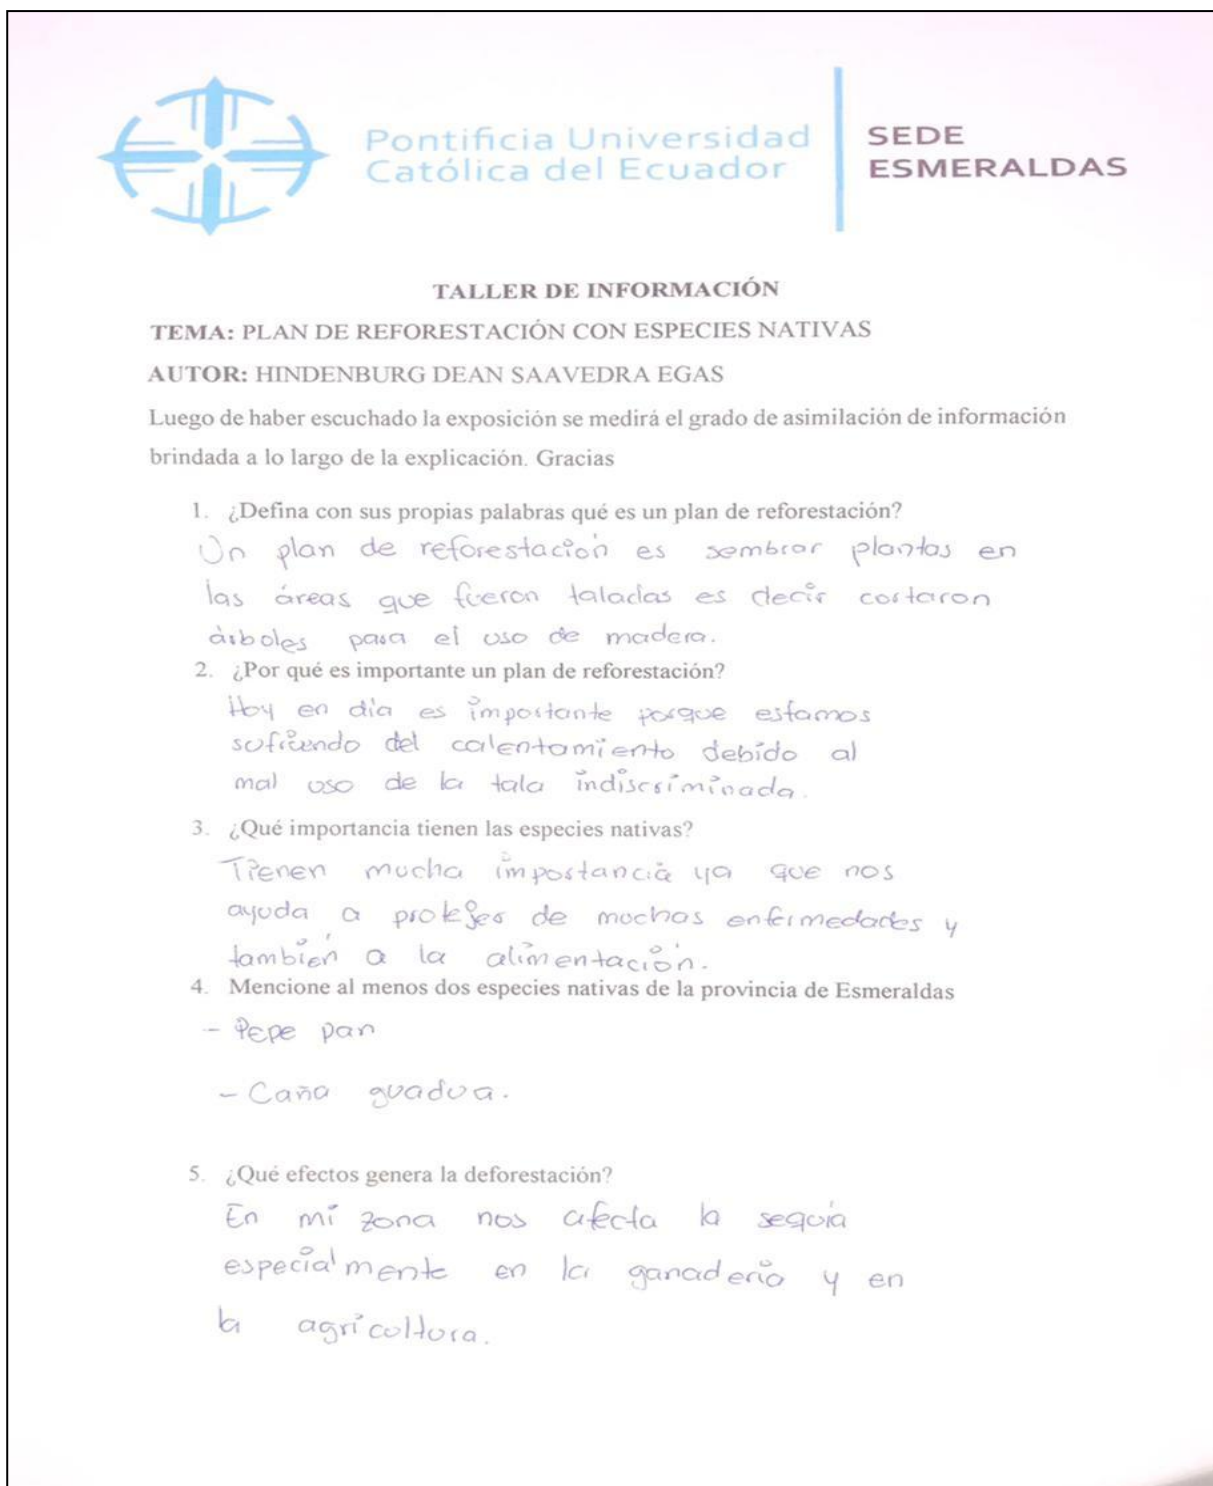 Pontificia Universidad
Católica del Ecuador
SEDE
ESMERALDAS
TALLER DE INFORMACIÓN
TEMA: PLAN DE REFORESTACIÓN CON ESPECIES NATIVAS
AUTOR: HINDENBURG DEAN SAAVEDRA EGAS
Luego de haber escuchado la exposición se medirá el grado de asimilación de información
brindada a lo largo de la explicación. Gracias
1. ¿Defina con sus propias palabras qué es un plan de reforestación?
Un plan de reforestación es sembrar plantas en
las áreas que fueron taladas es decir cortaron
árboles para el uso de madera.
2. ¿Por qué es importante un plan de reforestación?
Hoy en día es importante porque estamos
sufriendo del calentamiento debido al
mal uso de la tala indiscriminada.
3. ¿Qué importancia tienen las especies nativas?
Tienen mucha importancia ya que nos
ayuda a protejer de muchas enfermedades y
también a la alimentación.
4. Mencione al menos dos especies nativas de la provincia de Esmeraldas
- Pepe pan
- Caña guadua.
5. ¿Qué efectos genera la deforestación?
En mi zona nos afecta la sequía
especialmente en la ganadería y en
la agricultura.